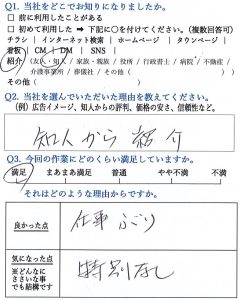 Q1. 当社をどこでお知りになりましたか。
□ 前に利用したことがある
□ 初めて利用した ➡ 下記に○を付けてください。(複数回答可)
チラシ | インターネット検索 | ホームページ | タウンページ |
看板 | CM | DM | SNS |
紹介 (友人・知人 / 家族・親族 / 役所 / 行政書士 / 病院 / 不動産 /
介護事業所 / 葬儀社 / その他 )
その他 ( )
Q2. 当社を選んでいただいた理由を教えてください。
(例) 広告イメージ、知人からの評判、価格の安さ、信頼性など。
知人から 紹介
Q3. 今回の作業にどのくらい満足していますか。
満足 まあまあ満足 普通 やや不満 不満
それはどのような理由からですか。
良かった点 仕事ぶり
気になった点
※どんなに
ささいな事
でも結構です
特別なし